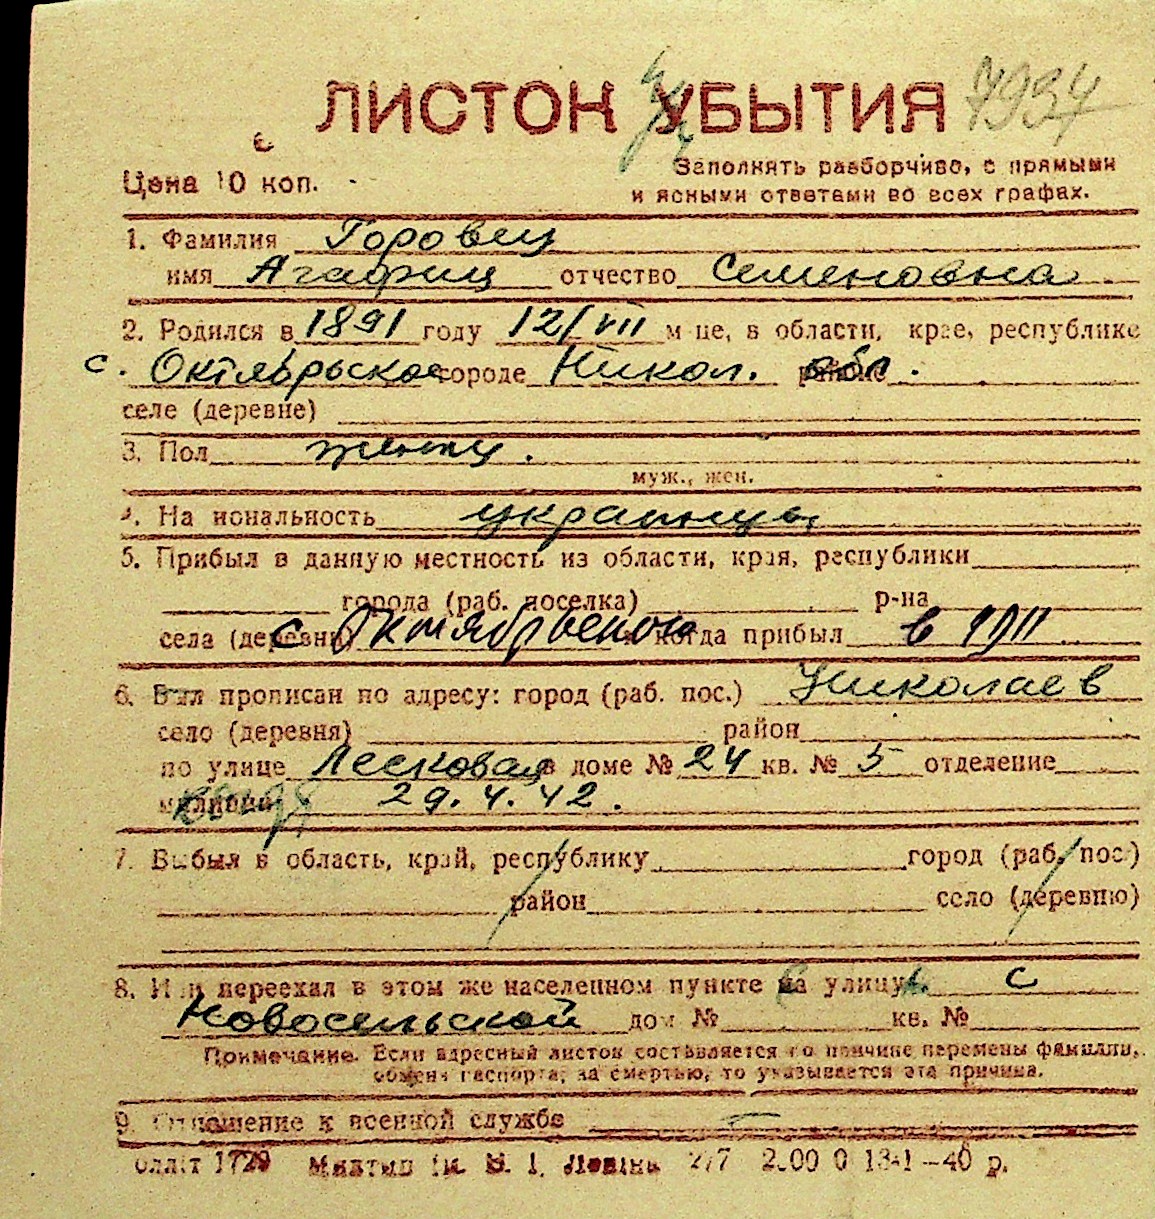 ЛИСТОК УБЫТИЯ 7934
Цена 10 коп.
Заполнять разборчиво, с прямыми
и ясными ответами во всех графах.
1. Фамилия Горовец
имя Агафиц отчество Семеновна
2. Родился в 1891 году 12/VII м-це, в области, крае, республике
с. Октябрьское городе Никол. обл.
селе (деревне)
3. Пол
муж., жен.
4. Национальность украинц
5. Прибыл в данную местность из области, края, республики
города (раб. поселка) р-на
села (деревни) с Октябрьского и когда прибыл в 1911
6. Был прописан по адресу: город (раб. пос.) Николаев
село (деревня) район
по улице Лесковая в доме № 24 кв. № 5 отделение
милиции 29.4.42.
7. Выбыл в область, край, республику город (раб. пос.)
район село (деревню)
8. Или переехал в этом же населенном пункте на улицу с
Новосельской дом № кв. №
Примечание. Если адресный листок составляется по причине перемены фамилии,
обмена паспорта, за смертью, то указывается эта причина.
9. Отношение к военной службе
1729 2/7 40 р.